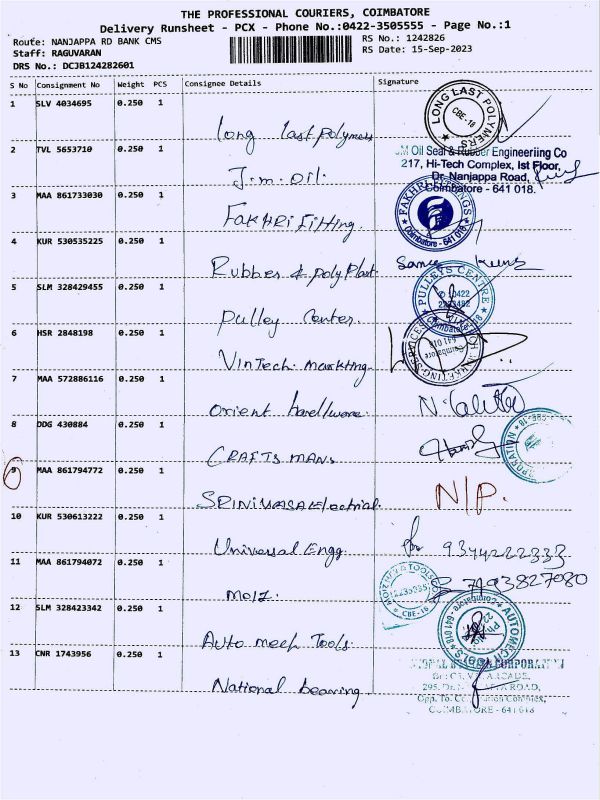 THE PROFESSIONAL COURIERS, COIMBATORE
Delivery Runsheet - PCX - Phone No.:0422-3505555 - Page No.:1
Route: NANJAPPA RD BANK CMS
RS No.: 1242826
Staff: RAGUVARAN
RS Date: 15-Sep-2023
DRS No.: DCJB124282601
S No Consignment No Weight PCS Consignee Details Signature
1 SLV 4034695 0.250 1
Long Last Polymers
LONG LAST POLYMERS CBE-18
2 TVL 5653710 0.250 1
J.m. oil.
JM Oil Seal & Rubber Engineeriing Co
217, Hi-Tech Complex, Ist Floor,
Dr. Nanjappa Road,
Coimbatore - 641 018.
3 MAA 861733030 0.250 1
FAKHRI Fitting.
FAKHRI FITTINGS Coimbatore - 641 018
4 KUR 530535225 0.250 1
Rubber & poly Plast
5 SLM 328429455 0.250 1
Pulley Center.
PULLEYS CENTRE 0422 Coimbatore
6 HSR 2848198 0.250 1
VinTech. Markting
MARKETING SERVICES Coimbatore 641 018
7 MAA 572886116 0.250 1
Orient hardware.
8 DDG 430884 0.250 1
CRAFTS MANS
9 MAA 861794772 0.250 1
SRINIVASA Electrical.
N/P.
10 KUR 530613222 0.250 1
Universal Engg.
9344222333
11 MAA 861794072 0.250 1
7193827080
TOOLS CBE-18
12 SLM 328423342 0.250 1
Auto mech Tools.
AUTOMECH TOOLS Coimbatore - 641 018
13 CNR 1743956 0.250 1
National bearing
CORPORATION
ROAD,
COIMBATORE - 641 018